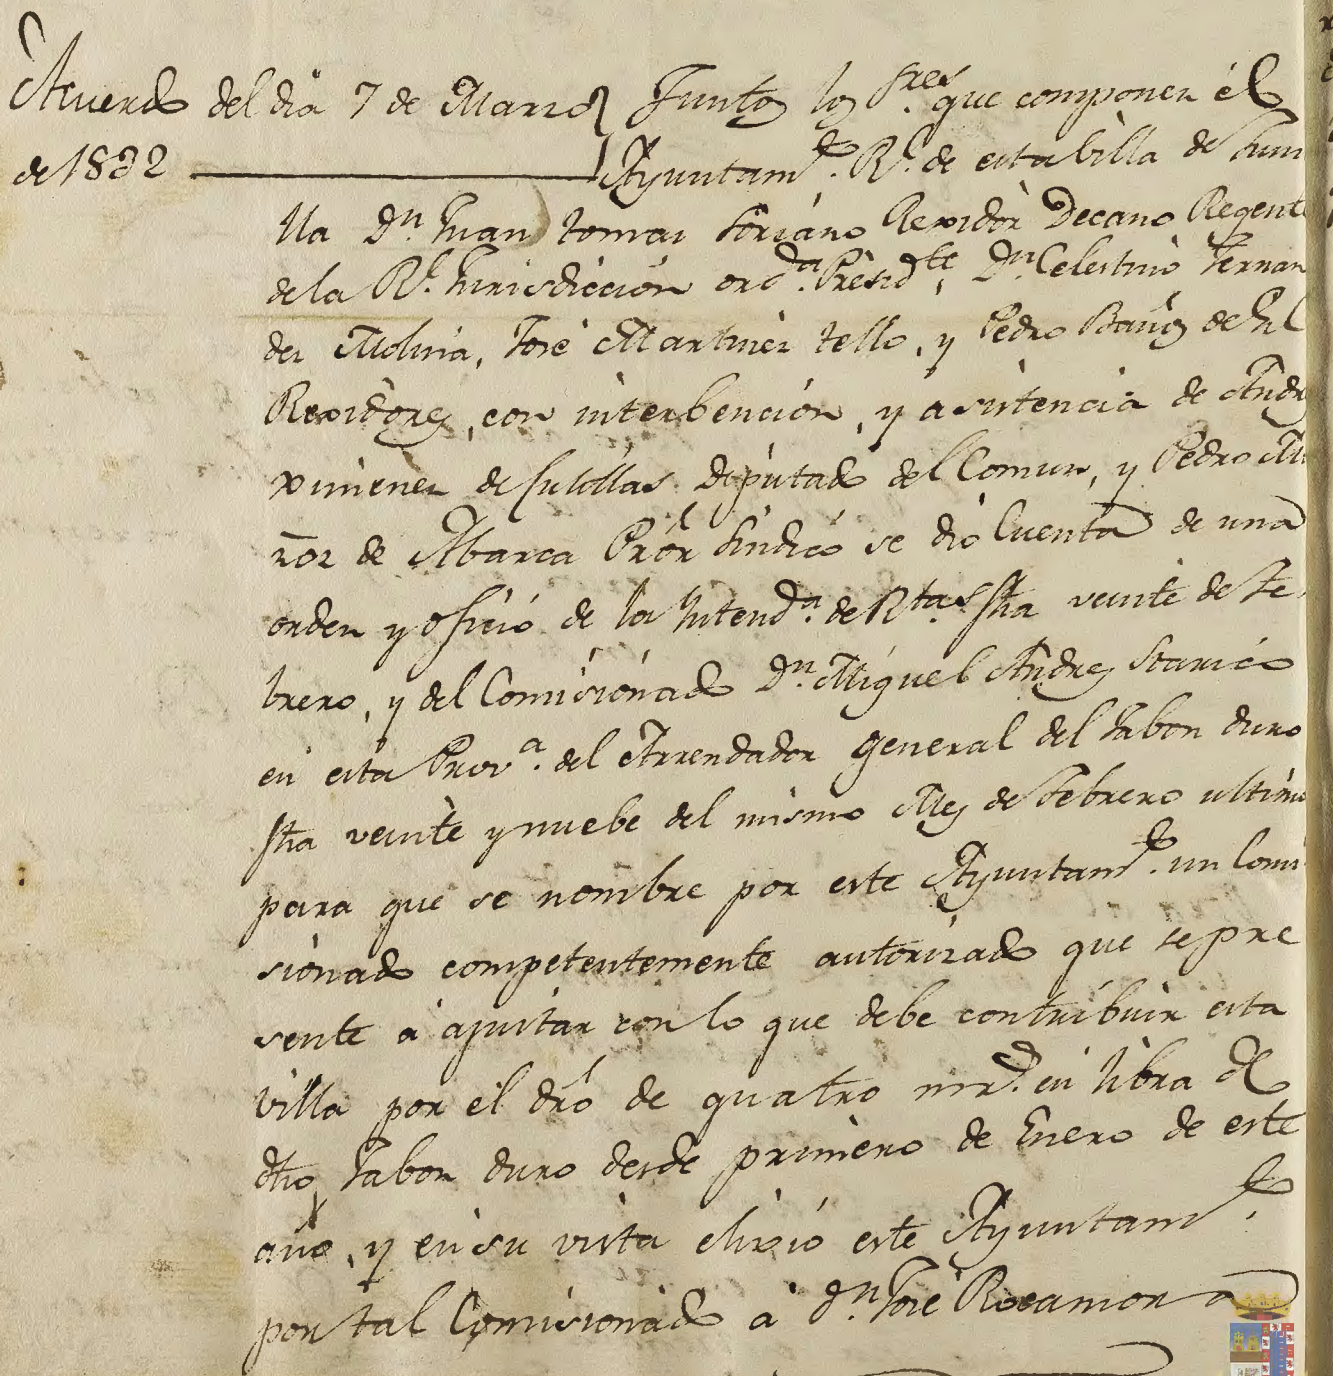 Acuerdo del dia 7 de Marzo Juntos los Sres. que componen él
de 1832 Ayuntamto. Rl. de esta Villa de Jumi
lla Dn. Juan tomas Soriano Rexidòr Decano Regente
de la Rl. Jurisdicción ordª. Presidte, Dn. Celestino Fernan
dez Molina, José Martinez tello, y Pedro Bañōs de Gil
Rexidores, con interbención, y asistencia de Andrs
ximenez de Cutillas Diputado del Comun, y Pedro Mu
ñoz de Abarca Prór Sindicó se dió Cuenta de una
orden y ofició de la Intendª. de Rtas. fha veinte de Fe
brero, y del Comisiónado Dn. Miguel Andres Starico
en esta Provª. del Arrendador general del Jabon duro
fha veinte y nuebe del mismo Mes de Febrero ultimo
para que se nombre por este Ayuntamto. un Comi
sionado competentemente autorizado que se pre
sente á ajustar con lo que debe contribuir esta
Villa por el dró de quatro mrs. en libra de
dho Jabon duro desde primero de Enero de este
año, y en su vista elixió este Ayuntamto.
por tal Comisionado á Dn. José Rocamora